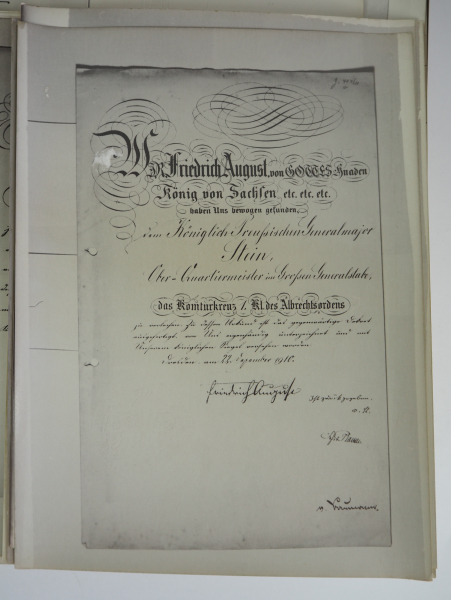 Wir Friedrich August, von GOTTES Gnaden
König von Sachsen, etc. etc. etc.
haben Uns bewogen gefunden,
dem Königlich Preußischen Generalmajor
Stein,
Ober-Quartiermeister im Großen Generalstabe,
das Komturkreuz 1. Kl. des Albrechtsordens
zu verleihen zu dessen Urkund ist das gegenwärtige Dekret
ausgefertigt, von Uns eigenhändig unterzeichnet und mit
Unserem königlichen Siegel versehen worden.
Dresden, am 22. Dezember 1910.
Friedrich August